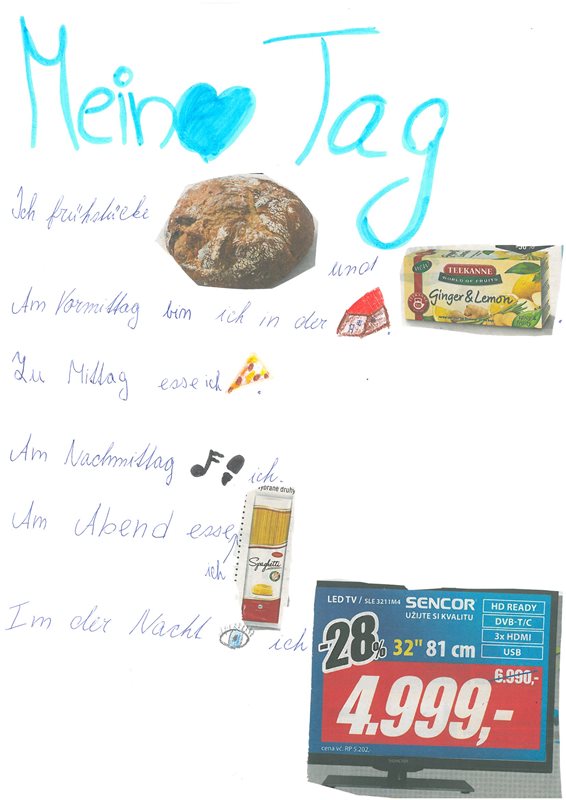 Mein Tag
Ich frühstücke
und
TEEKANNE
WORLD OF FRUITS
Ginger & Lemon
Am Vormittag bin ich in der .
Zu Mittag esse ich .
Am Nachmittag ich.
druhy
Am Abend esse
ich
Spaghetti
Im der Nacht ich
LED TV / SLE 3211M4 SENCOR
UŽIJTE SI KVALITU
HD READY
DVB-T/C
3x HDMI
USB
-28% 32" 81 cm
6.990,-
4.999,-
cena vč. RP 5.202,-
SENCOR